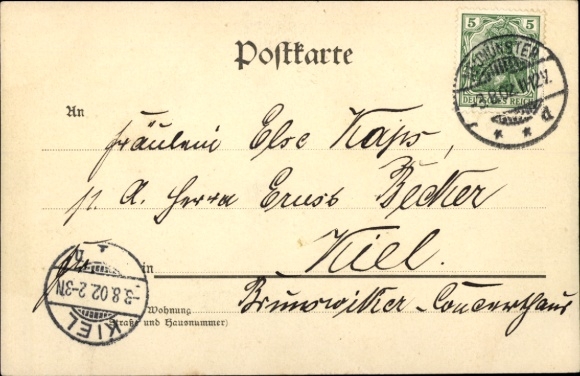 Postkarte
5 5
DEUTSCHES REICH
MÜNSTER
3.8.02 11-12V.
An
Fräulein Else Kaps,
p. A. Herrn Ernst Becker
Kiel.
in
Brunswiker-Concerthaus
Wohnung
(Straße und Hausnummer)
KIEL
-3.8.02.2-3N